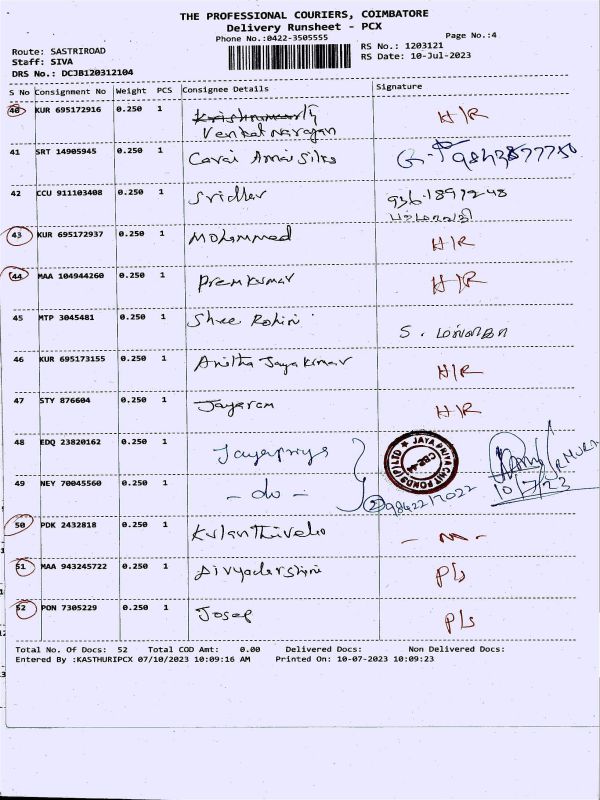 THE PROFESSIONAL COURIERS, COIMBATORE
Delivery Runsheet - PCX
Phone No.:0422-3505555
Page No.:4
Route: SASTRIROAD
Staff: SIVA
DRS No.: DCJB120312104
RS No.: 1203121
RS Date: 10-Jul-2023
S No Consignment No Weight PCS Consignee Details Signature
40 KUR 695172916 0.250 1 Venkat narayan H/R
41 SRT 14905945 0.250 1 Covai Annai Silks
42 CCU 911103408 0.250 1 Sridhar
43 KUR 695172937 0.250 1 Mohammed H/R
44 MAA 104944260 0.250 1 Prem kumar H/R
45 MTP 3045481 0.250 1 Shree Rohini S.
46 KUR 695173155 0.250 1 Anitha Jayakumar H/R
47 STY 876604 0.250 1 Jayaram H/R
48 EDQ 23820162 0.250 1 Jayapriya
JAYA PRIYA CHIT FUNDS (P) LTD
CBE-44
49 NEY 70045560 0.250 1 - do - 9842217022 10/7/23
50 PDK 2432818 0.250 1 Kulanthivelu
51 MAA 943245722 0.250 1 Divyadarshini P/s
52 PON 7305229 0.250 1 Josep P/s
Total No. Of Docs: 52 Total COD Amt: 0.00 Delivered Docs: Non Delivered Docs:
Entered By :KASTHURIPCX 07/10/2023 10:09:16 AM Printed On: 10-07-2023 10:09:23